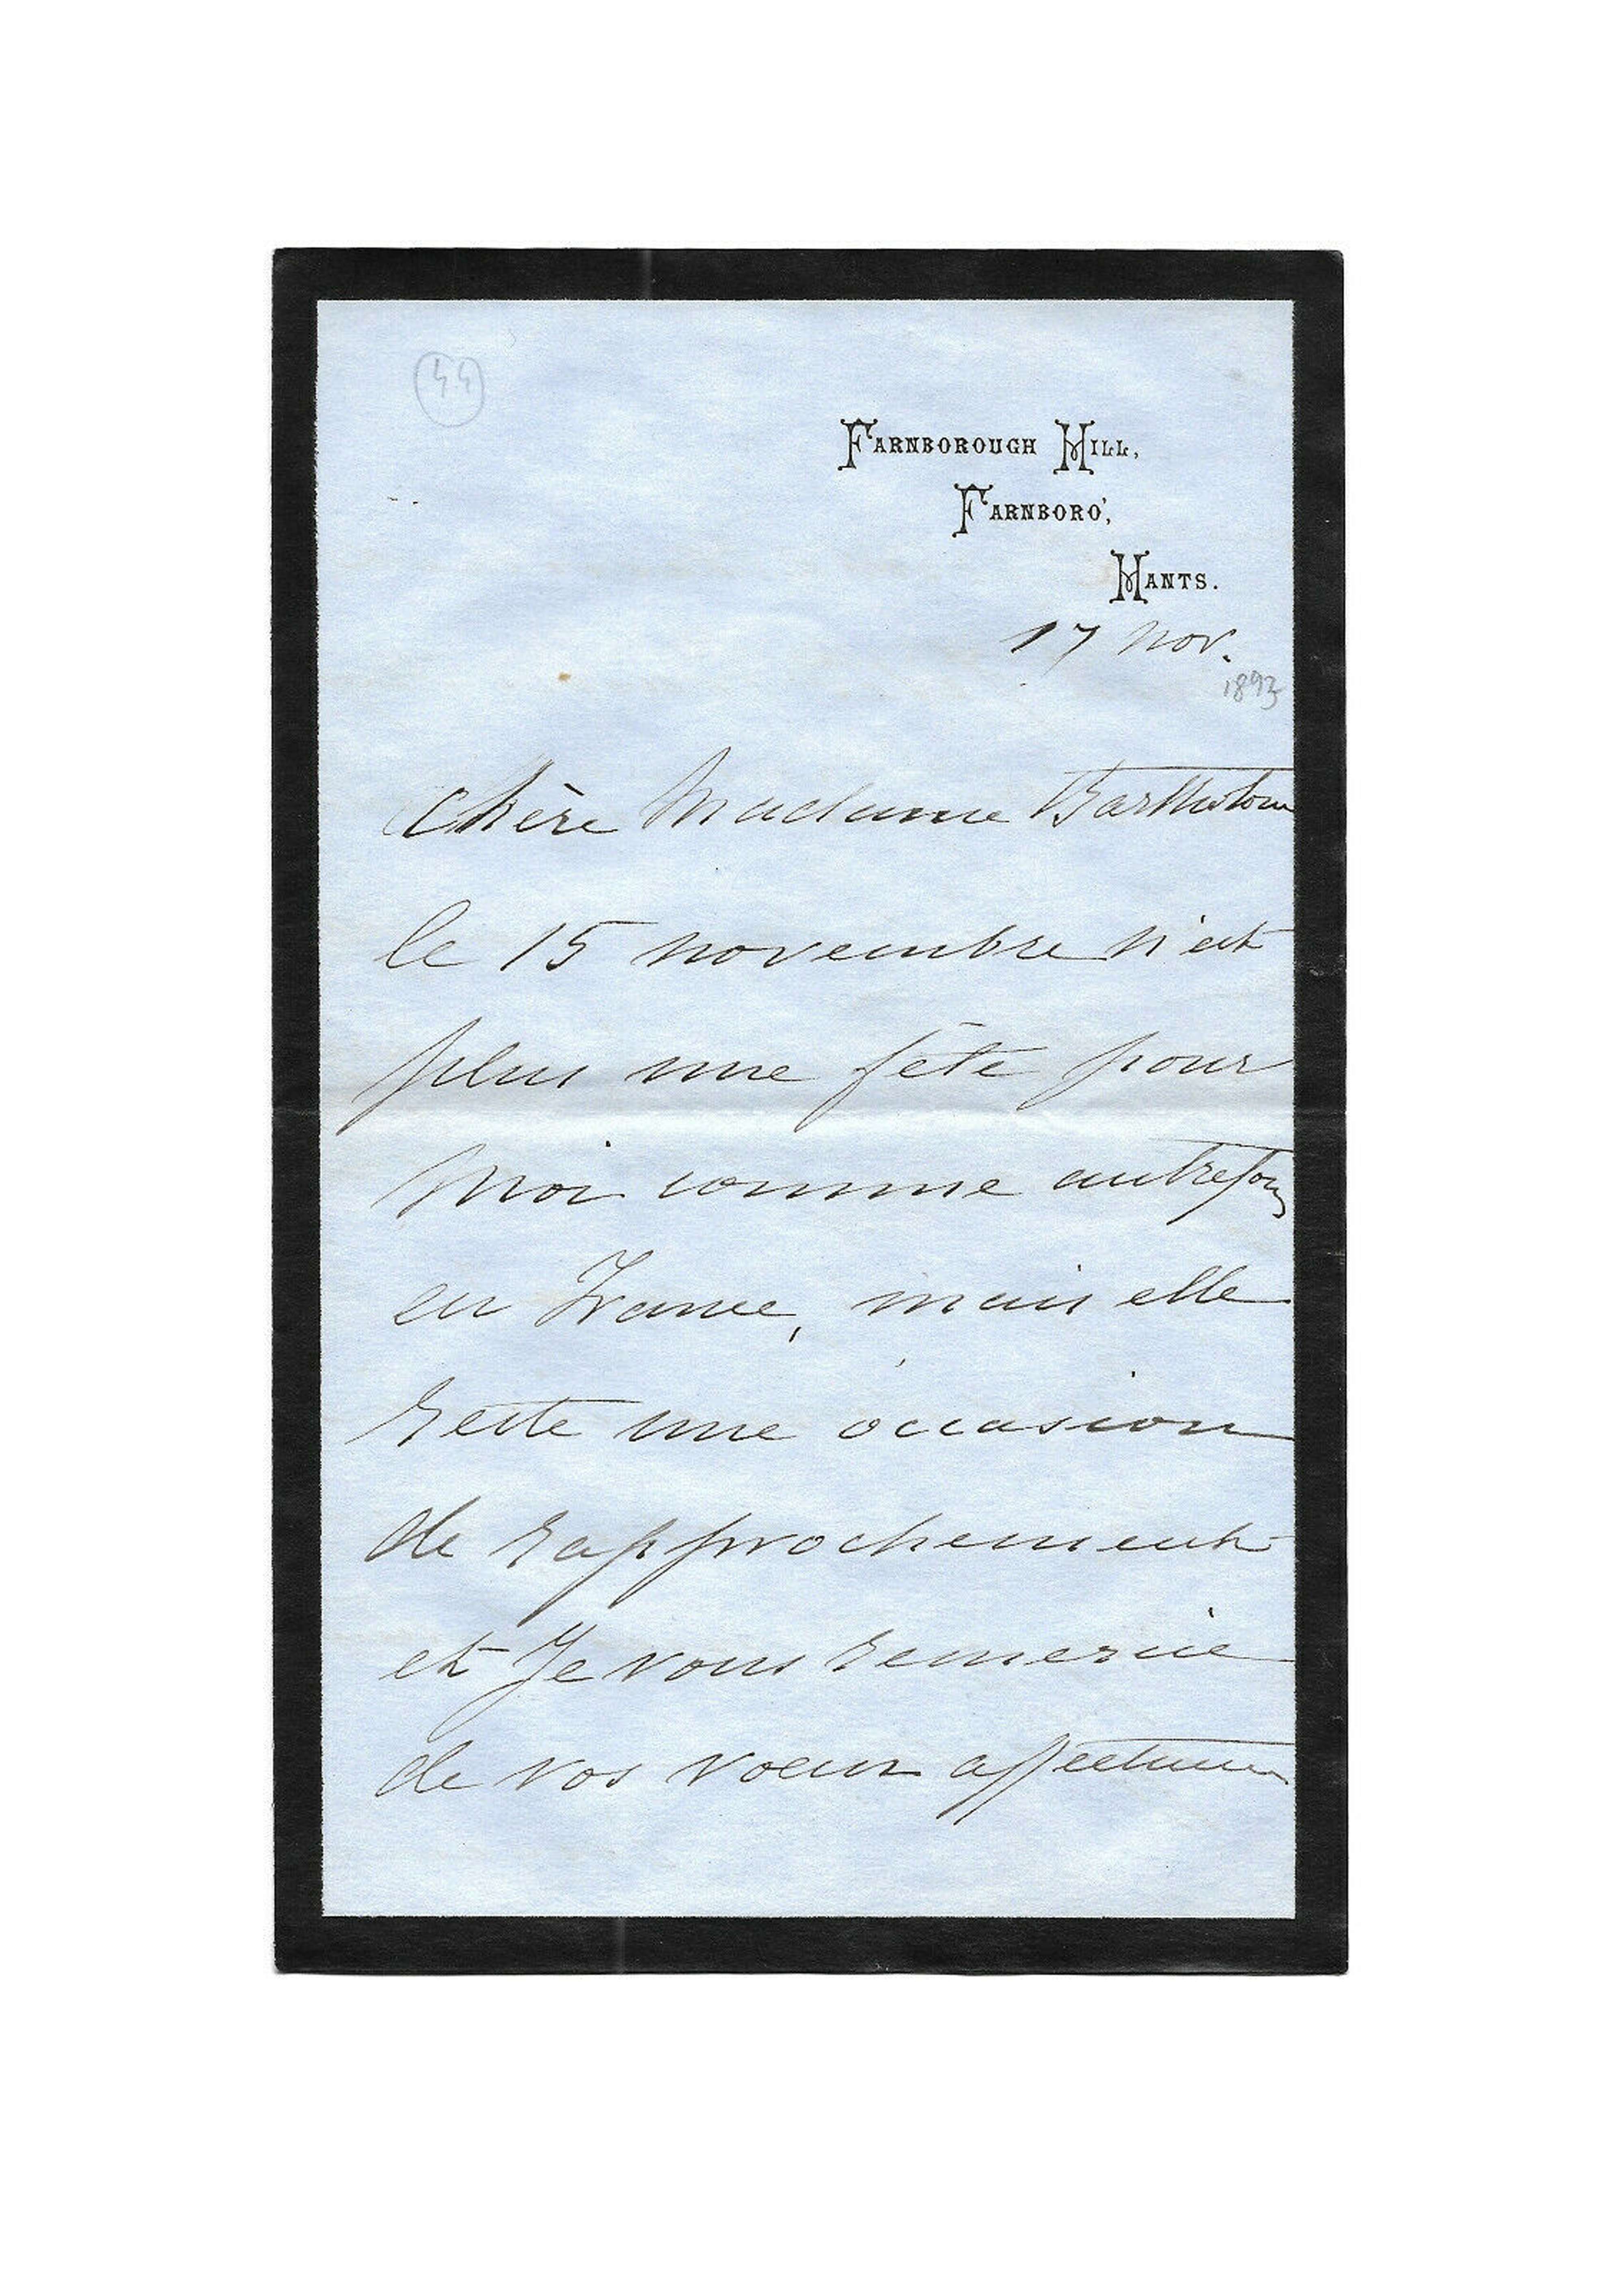 44
FARNBOROUGH HILL,
FARNBORO',
HANTS.
17 nov.
1893
Chère Madame Bartholon
le 15 novembre n'est
plus une fête pour
moi comme autrefois
en France, mais elle
reste une occasion
de rapprochement
et Je vous remercie
de vos voeux affectueux